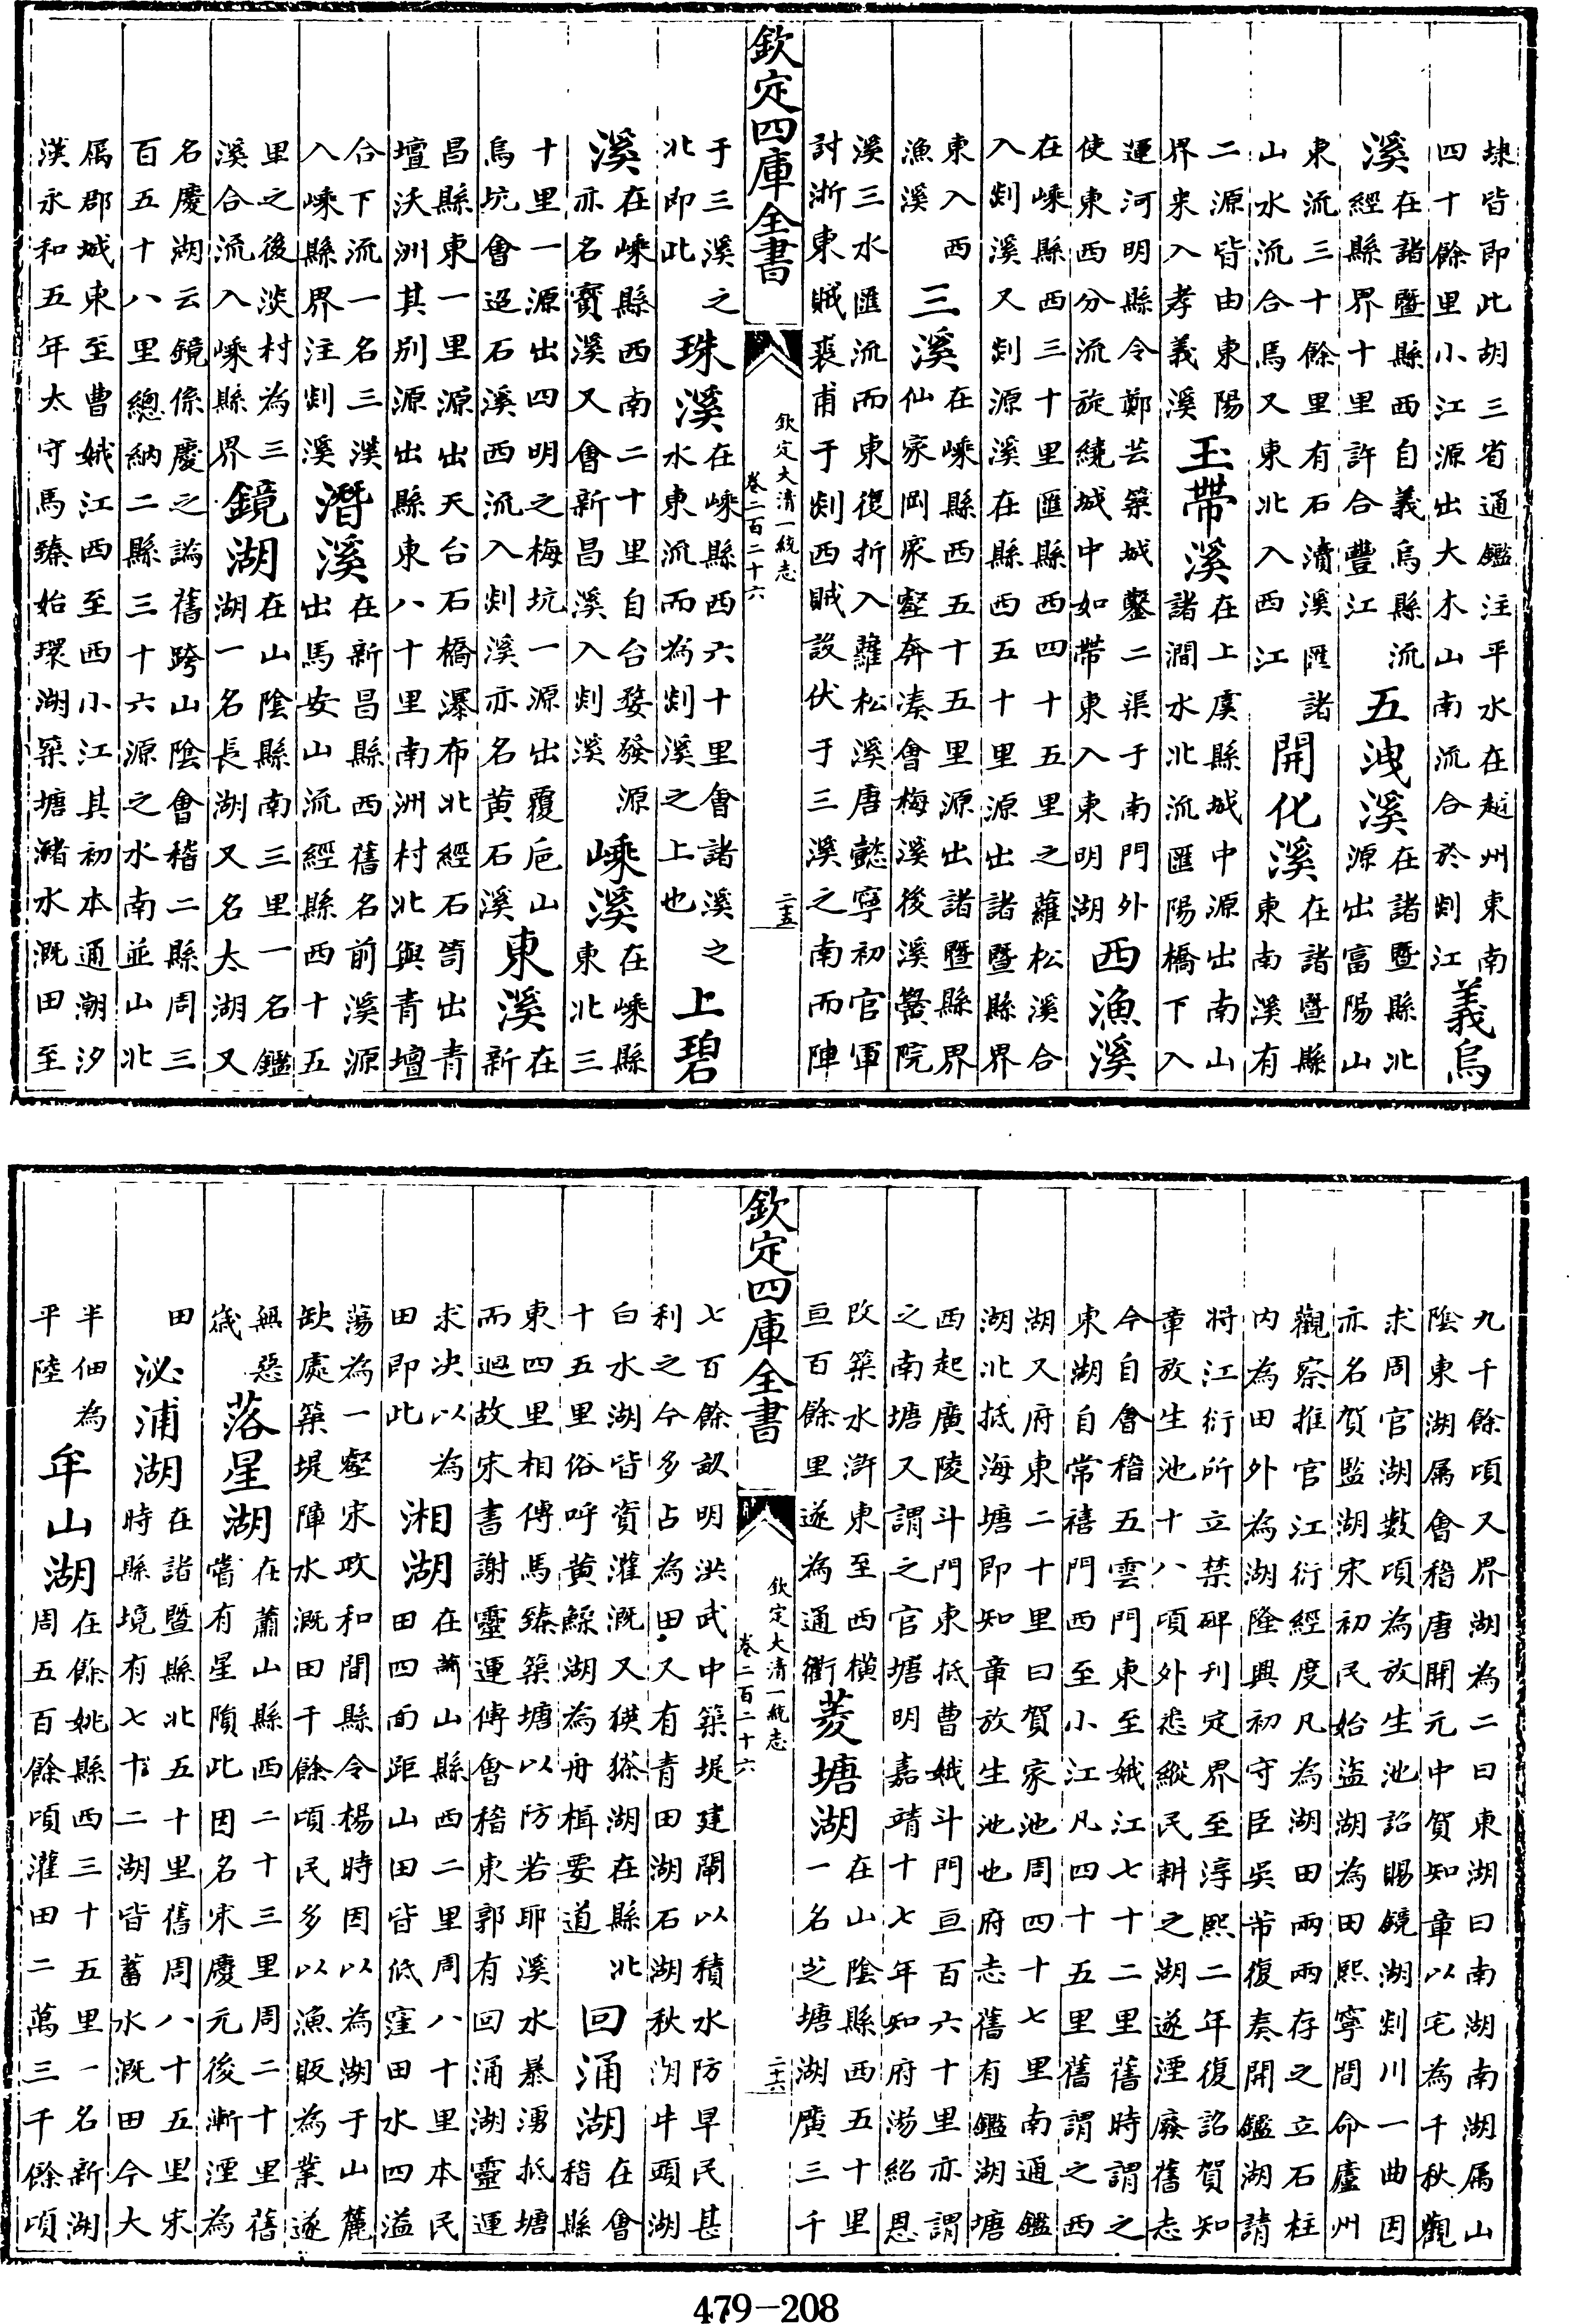 埭皆即此胡三省通鑑注平水在越州東南四十餘里小江源出大木山南流合於剡江義烏
溪在諸暨縣西自義烏縣流經縣界十里許合豐江五洩溪在諸暨縣北源出富陽山
東流三十餘里有石瀆溪匯諸山水流合馬又東北入西江開化溪在諸暨縣東南溪有
二源皆由東陽界来入孝義溪玉帶溪在上虞縣城中源出南山諸澗水北流匯陽橋下入
運河明縣令鄭芸築城鑿二渠于南門外使東西分流旋繞城中如帶東入東明湖西漁溪
在嵊縣西三十里匯縣西四十五里之蘿松溪合入剡溪又剡源溪在縣西五十里源出諸暨縣界
東入西漁溪三溪在嵊縣西五十五里源出諸暨縣界仙家岡家壑奔湊會梅溪後溪黌院
溪三水匯流而東復折入蘿松溪唐懿寧初官軍討浙東賊裘甫于剡西賊設伏于三溪之南而陣
欽定四庫全書
欽定大清一統志
卷二百二十六
二五
于三溪之北即此珠溪在嵊縣西六十里會諸溪之水東流而為剡溪之上也上碧
溪在嵊縣西南二十里自台婺發源亦名寶溪又會新昌溪入剡溪嵊溪在嵊縣東北三
十里一源出四明之梅坑一源出覆巵山烏坑會迢石溪西流入剡溪亦名黄石溪東溪在新
昌縣東一里源出天台石橋瀑布北經石筍出青壇沃洲其別源出縣東八十里南洲村北與青壇
合下流一名三漢入嵊縣界注剡溪潛溪在新昌縣西舊名前溪源出馬安山流經縣西十五
里之後淡村為三溪合流入嵊縣界鏡湖在山陰縣南三里一名鑑湖一名長湖又名太湖又
名慶湖云鏡係慶之譌舊跨山陰會稽二縣周三百五十八里總納二縣三十六源之水南並山北
属郡城東至曹娥江西至西小江其初本通潮汐漢永和五年太守馬臻始環湖築塘瀦水溉田至
九千餘頃又界湖為二曰東湖曰南湖南湖属山陰東湖属會稽唐開元中賀知章以宅為千秋觀
求周官湖數頃為放生池詔賜鏡湖剡川一曲因亦名賀監湖宋初民始盜湖為田熙寧間命廬州
觀察推官江衍經度凡為湖田兩兩存之立石柱内為田外為湖隆興初守臣吳芾復奏開鑑湖請
将江衍所立禁碑刊定界至淳熙二年復詔賀知章放生池十八頃外悉縱民耕之湖遂湮廢舊志
今自會稽五雲門東至娥江七十二里舊時謂之東湖自常禧門西至小江凡四十五里舊謂之西
湖又府東二十里曰賀家池周四十七里南通鑑湖北抵海塘即知章放生池也府志舊有鑑湖塘
西起廣陵斗門東抵曹娥斗門亘百六十里亦謂之南塘又謂之官塘明嘉靖十七年知府湯紹恩
改築水滸東至西横亘百餘里遂為通衢菱塘湖在山陰縣西五十里一名芝塘湖廣三千
欽定四庫全書
欽定大清一統志
卷二百二十六
二六
七百餘畝明洪武中築堤建閘以積水防旱民甚利之今多占為田又有青田湖石湖秋湖牛頭湖
白水湖皆資灌溉又湖在縣北十五里俗呼黄鯀湖為舟楫要道回涌湖在會稽縣
東四里相傳馬臻築塘以防若耶溪水暴湧抵塘而迴故宋書謝靈運傳會稽東郭有回涌湖靈運
求决以為田即此湘湖在蕭山縣西二里周八十里本民田四面距山田皆低窪田水四溢
蕩為一壑宋政和間縣令楊時因以為湖于山麓缺處築堤障水溉田千餘頃民多以漁販為業遂
無惡歲落星湖在蕭山縣西二十三里周二十里舊嘗有星隕此因名宋慶元後漸湮為
田泌浦湖在諸暨縣北五十里舊周八十五里宋時縣境有七十二湖皆蓄水溉田今大
半佃為平陸牟山湖在餘姚縣西三十五里一名新湖周五百餘頃灌田二萬三千餘頃
479-208